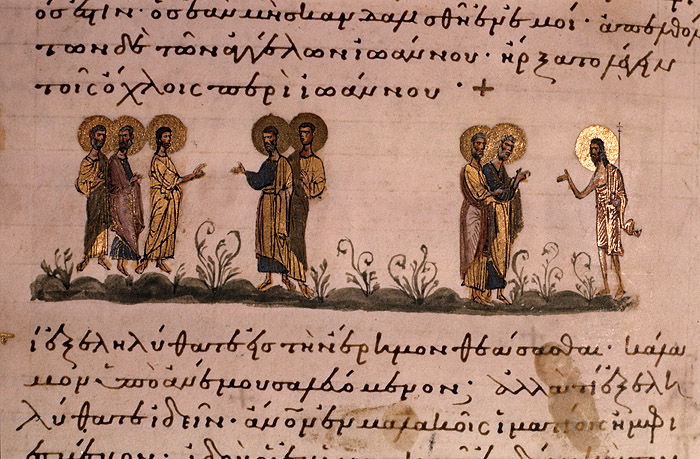 ἐστιν· ὃς ἐὰν μὴ σκανδαλισθῆ ἐν ἐμοί· ἀπελθόν
των δὲ τῶν ἀγγέλων ἰωάννου· ἤρξατο λέγειν
τοῖς ὄχλοις περὶ ἰωάννου· +
ί ἐξεληλύθατε εἰς τὴν ἔρημον θεάσασθαι· κάλα
μον ὑπὸ ἀνέμου σαλευόμενον; ἀλλὰ τί ἐξελη
λύθατε ἰδεῖν· ἀνον ἐν μαλακοῖς ἱματίοις ἠμφι